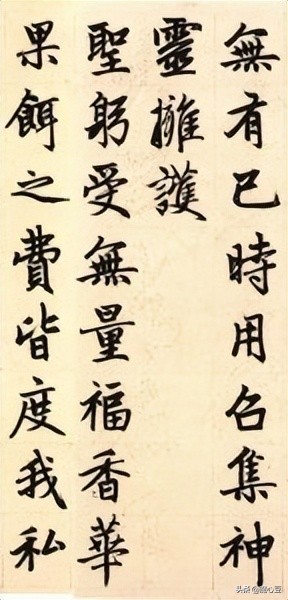 無有已時用召集神
靈擁護
聖躬受無量福香華
果餌之費皆度我私
头条@随心爱